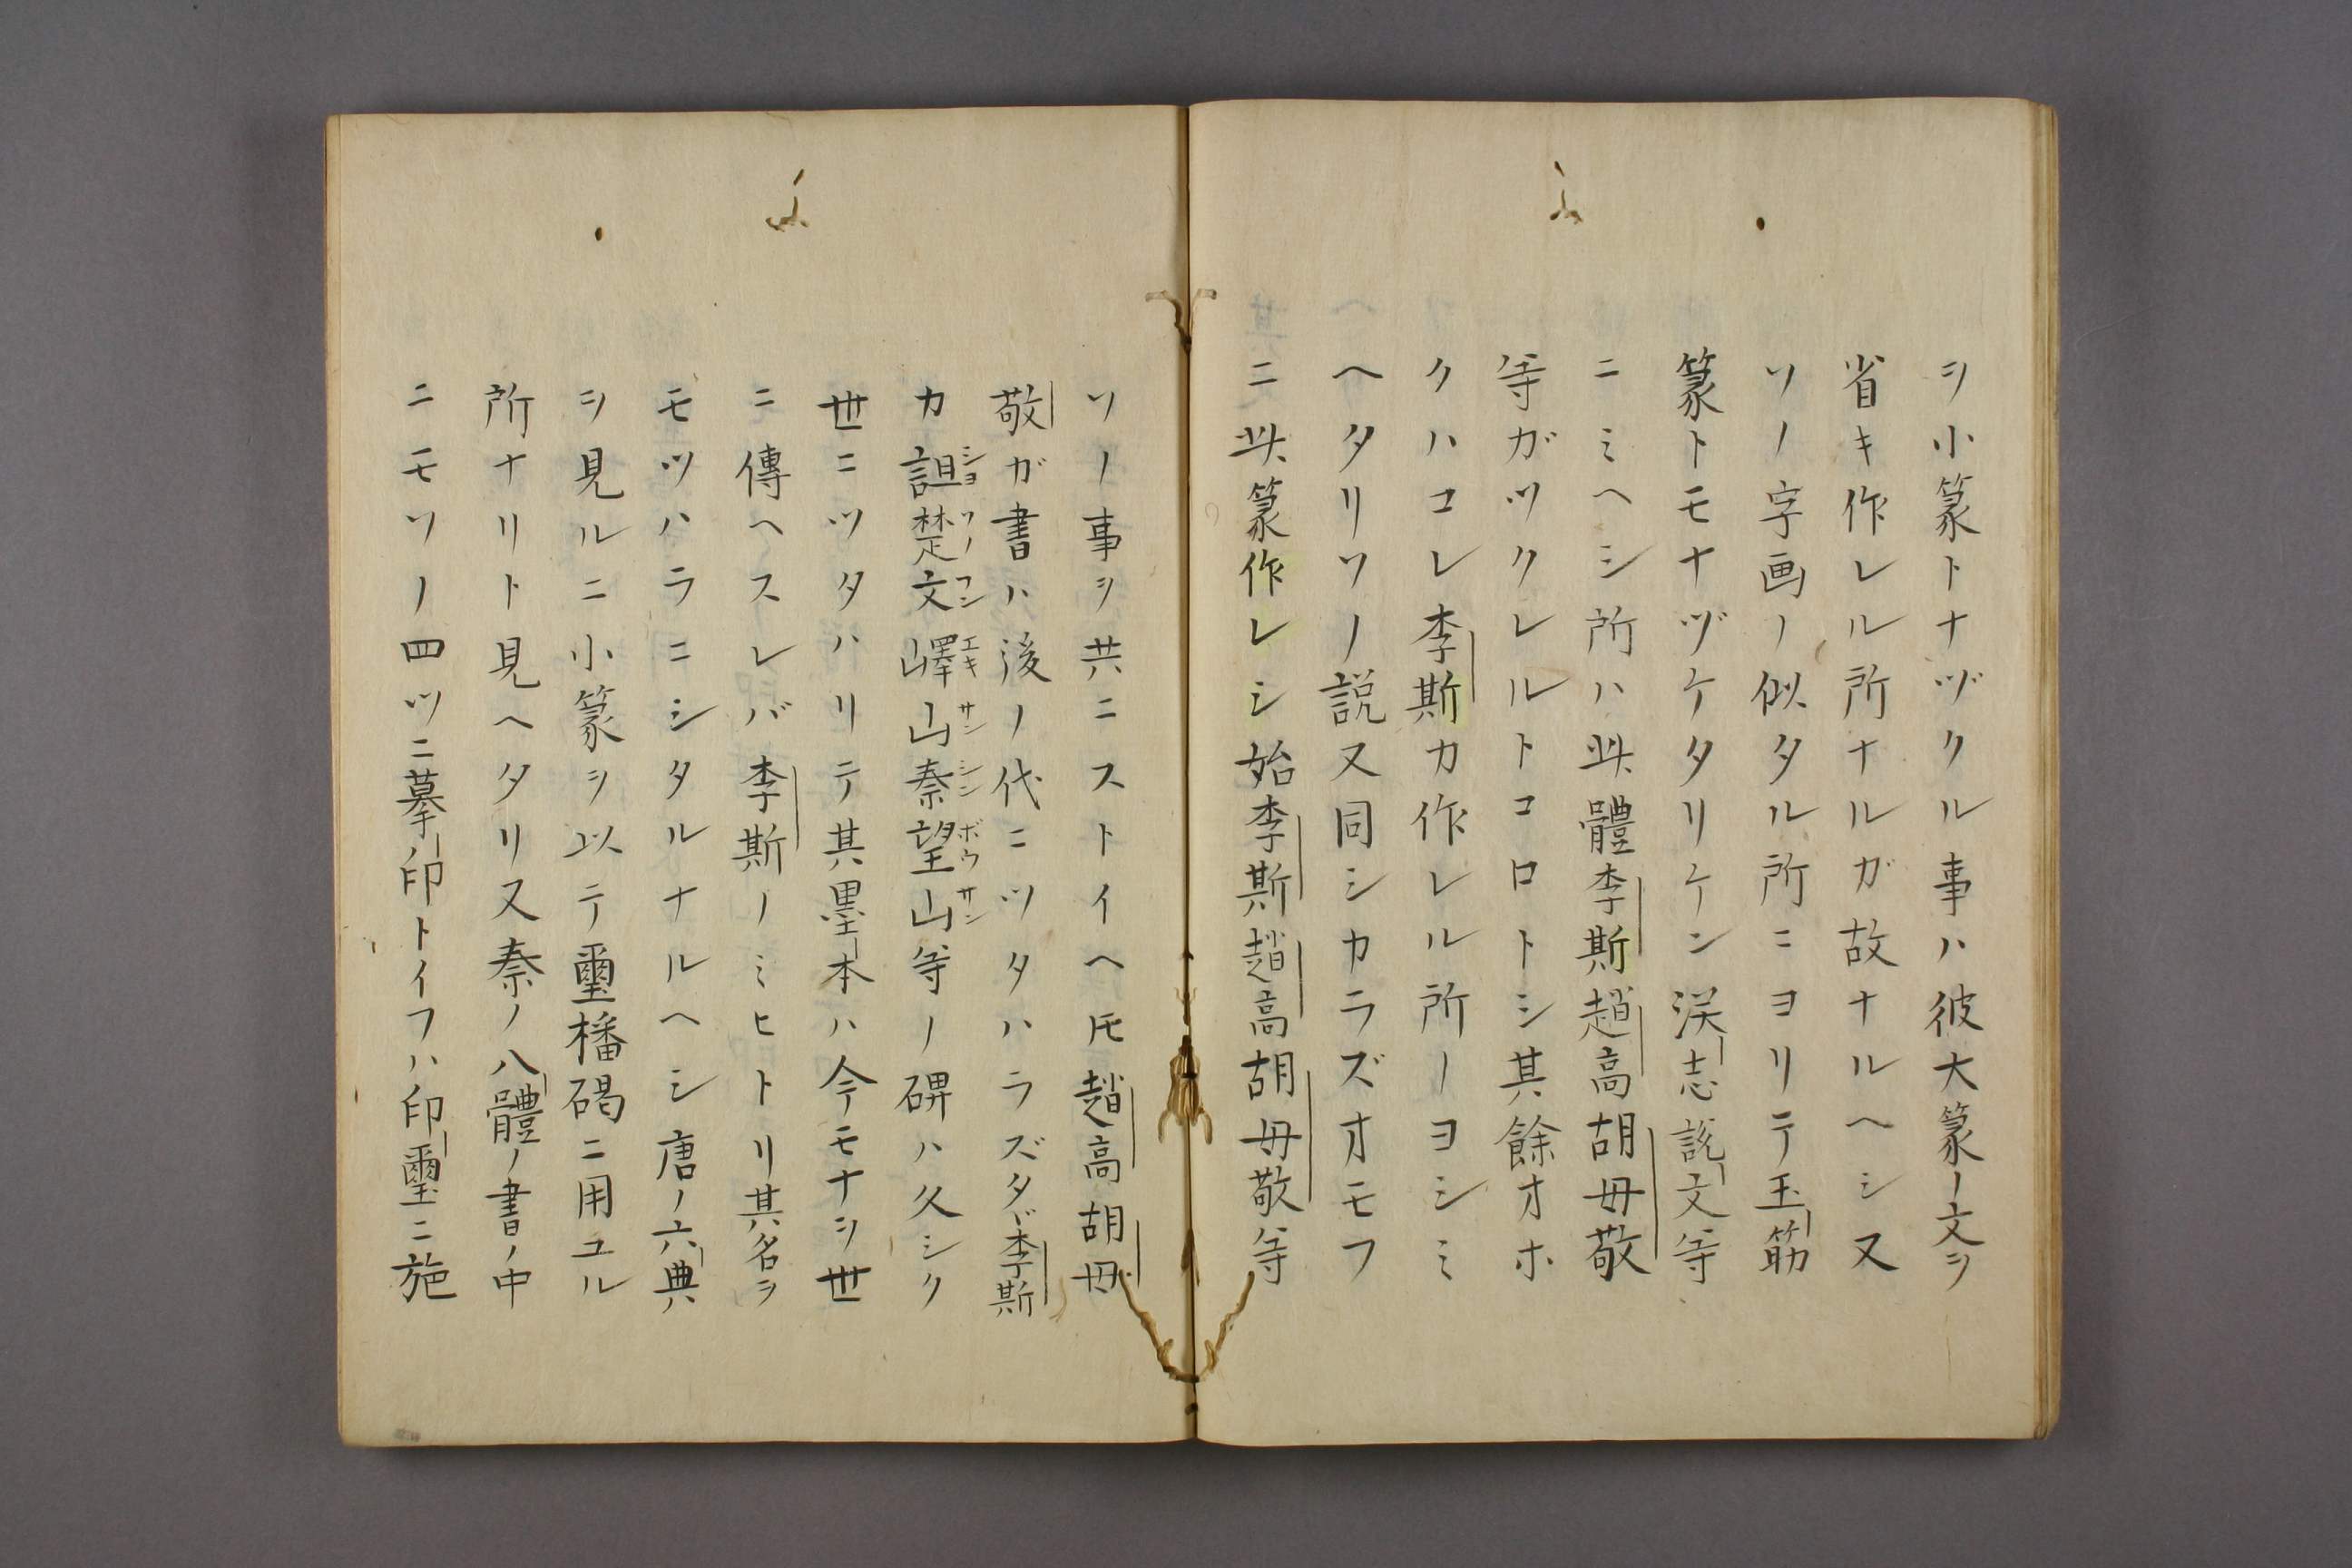 ヲ小篆トナヅクル事ハ彼大篆ノ文ヲ
省キ作レル所ナルガ故ナルヘシ又
ソノ字画ノ似タル所ニヨリテ玉筋
篆トモナヅケタリケン漢志説文等
ニミヘシ所ハ此體李斯趙高胡毋敬
等ガツクレルトコロトシ其餘オホ
クハコレ李斯カ作レル所ノヨシミ
ヘタリソノ説又同シカラズオモフ
ニ此篆作レシ始李斯趙高胡毋敬等
ソノ事ヲ共ニストイヘ𪜈趙高胡毋
敬ガ書ハ後ノ代ニツタハラズタヾ李斯
カ詛楚文嶧山秦望山等ノ碑ハ久シク
ショソノフンエキサンシンボウサン
世ニツタハリテ其墨本ハ今モナヲ世
ニ傳ヘスレバ李斯ノミヒトリ其名ヲ
モツハラニシタルナルヘシ唐ノ六典
ヲ見ルニ小篆ヲ以テ璽旛碣ニ用ユル
所ナリト見ヘタリ又秦ノ八體ノ書ノ中
ニモソノ四ツニ摹印トイフハ印璽ニ施